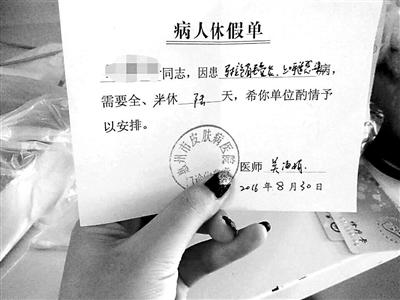 病人休假单
同志，因患 病，
需要全、半休 陆 天，希你单位酌情予
以安排。
惠州市皮肤病医院
医师
2016年8月30日